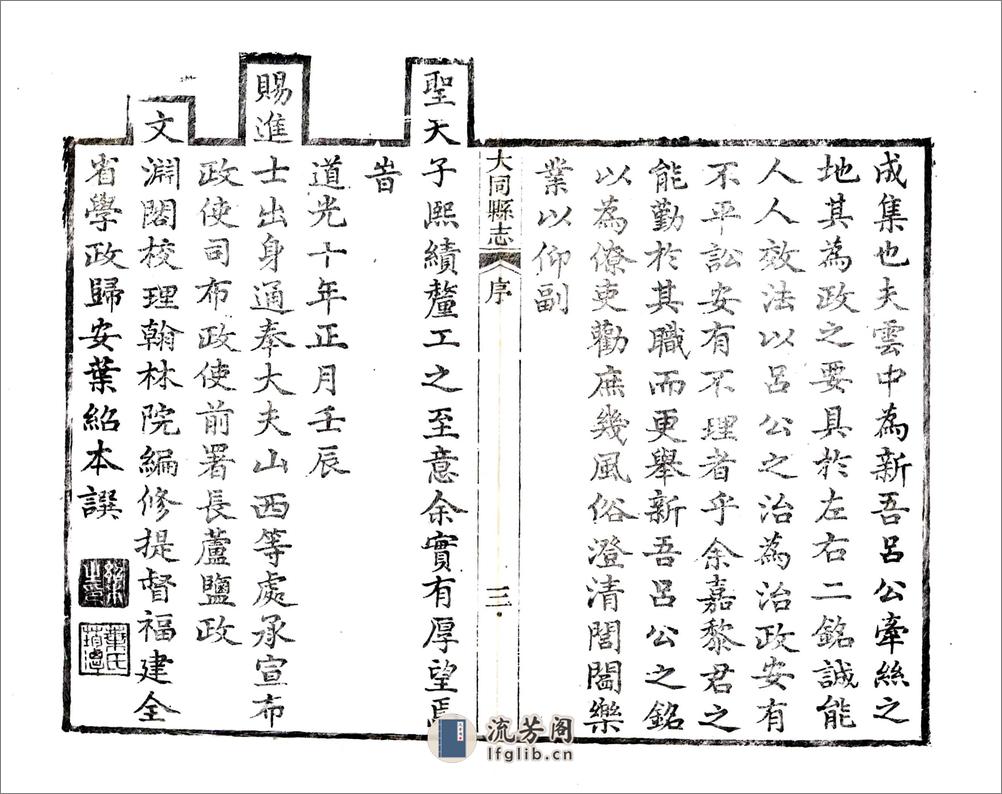 成集也夫雲中為新吾呂公牽絲之
地其為政之要具於左右二銘誠能
人人效法以呂公之治為治政安有
不平訟安有不理者乎余嘉黎君之
能勤於其職而更舉新吾呂公之銘
以為僚吏勸庶幾風俗澄清閭閻樂
業以仰副
大同縣志
序
三
聖天子熙績釐工之至意余實有厚望焉
旹
道光十年正月壬辰
賜進士出身通奉大夫山西等處承宣布
政使司布政使前署長蘆鹽政
文淵閣校理翰林院編修提督福建全
省學政歸安葉紹本譔
流芳阁
lfglib.cn